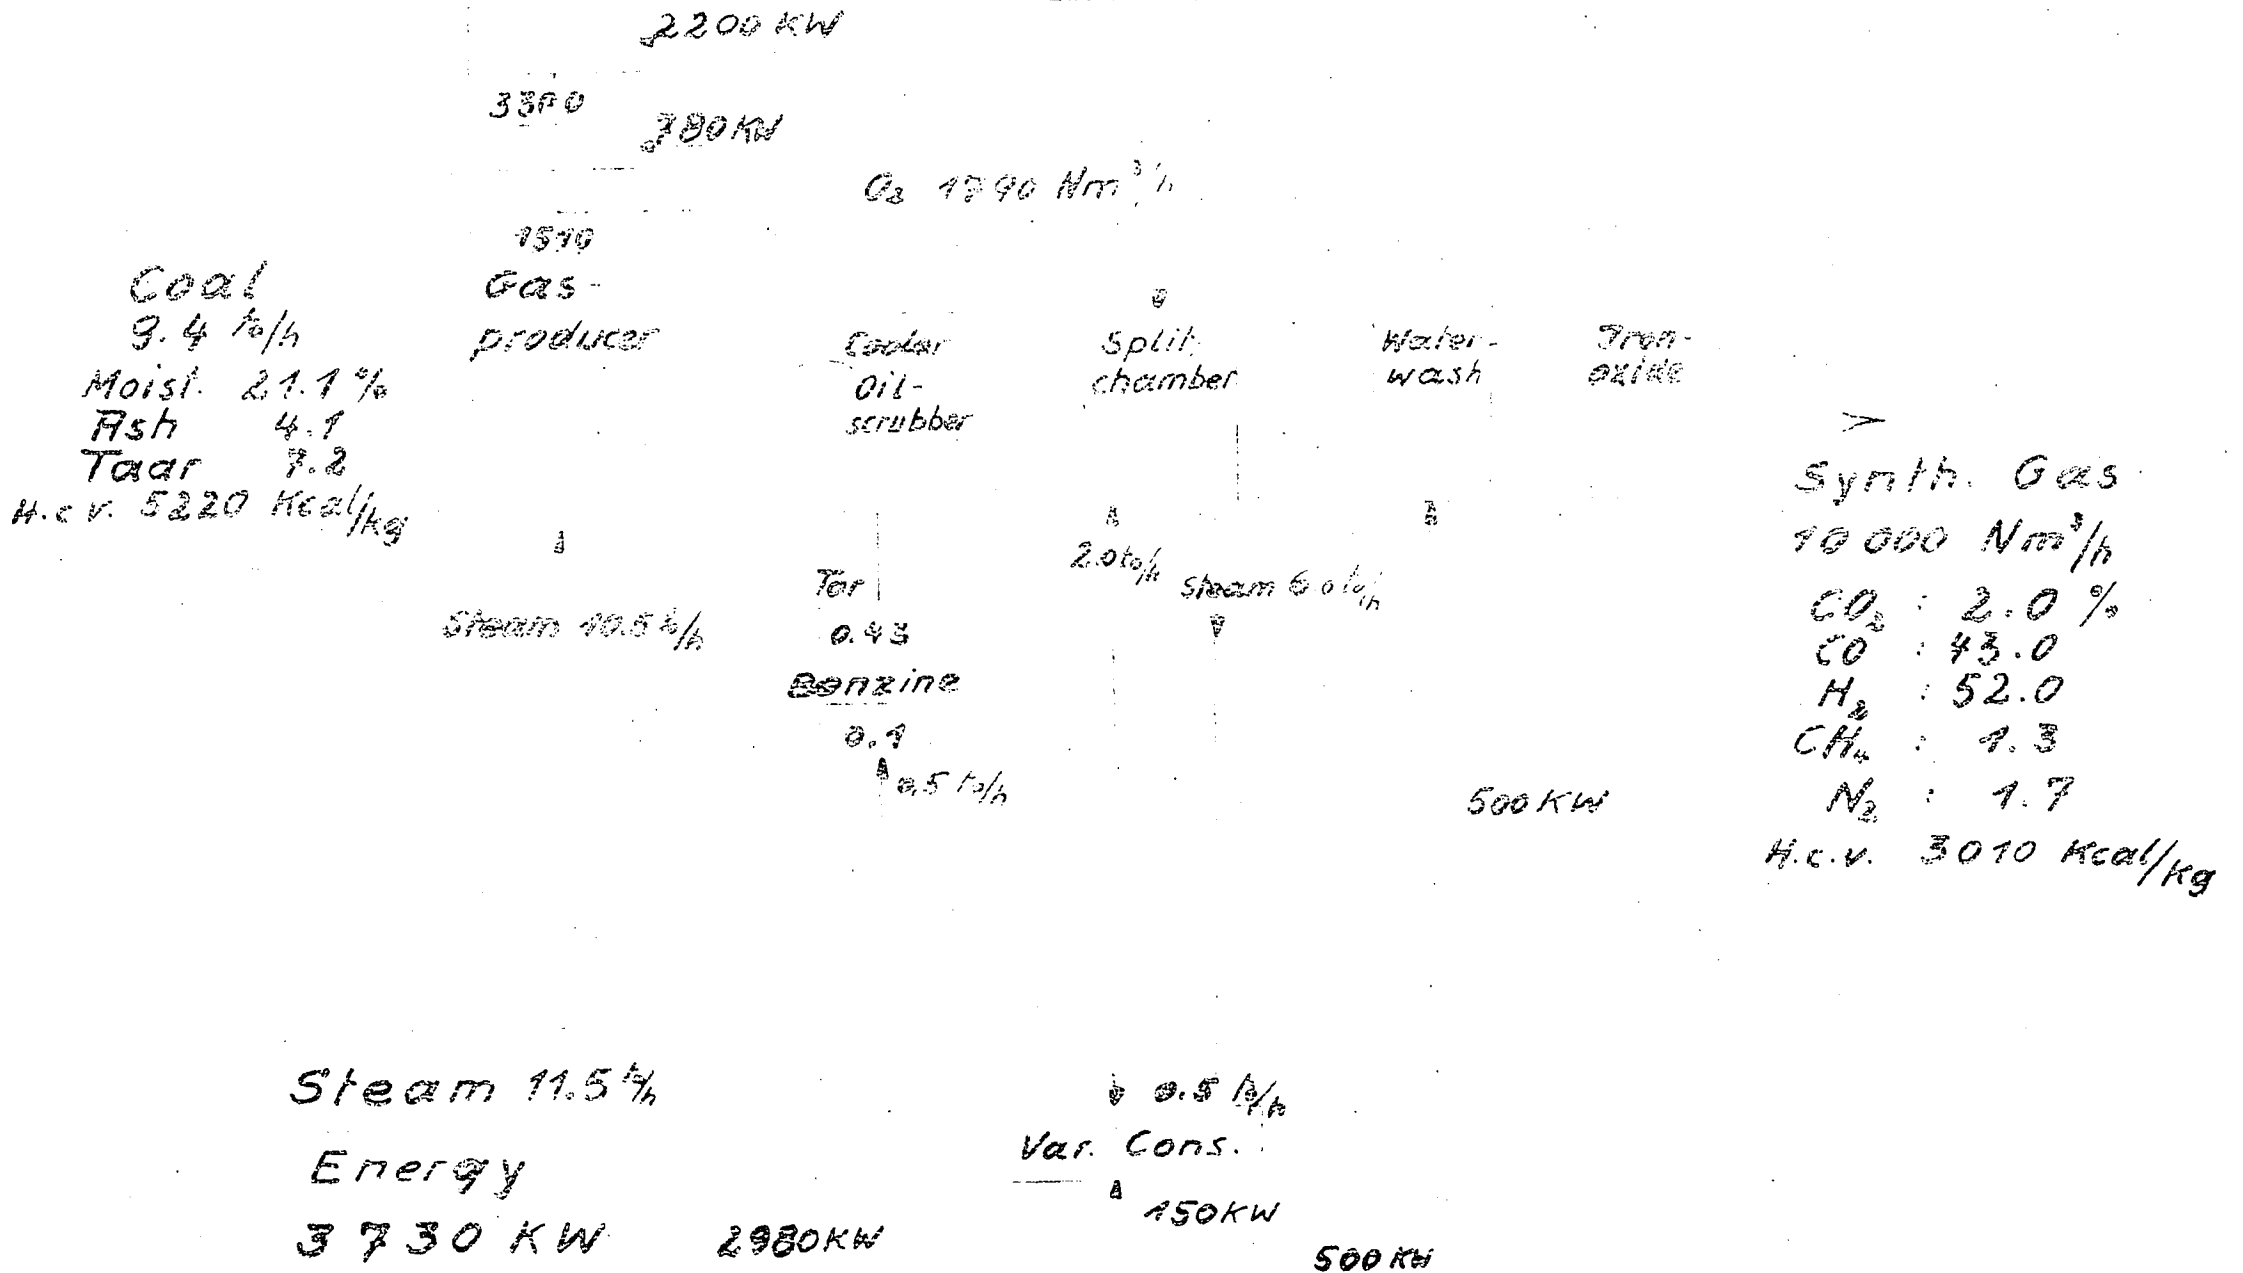 2200 KW
3300
780 KW
O₂ 1890 Nm³/h
1510
Coal
9.4 to/h
Moist. 21.1 %
Ash 4.1
Taar 7.2
H.c.v. 5220 Kcal/kg
Gas-
producer
Cooler
Oil-
scrubber
Split.
chamber
Water-
wash
Iron-
oxide
Synth. Gas
10 000 Nm³/h
CO₂ : 2.0 %
CO : 43.0
H₂ : 52.0
CH₄ : 1.3
N₂ : 1.7
H.c.v. 3010 Kcal/kg
Steam 10.5 to/h
Tar
0.43
Benzine
0.1
0.5 to/h
2.0 to/h
Steam 6.0 to/h
500 KW
Steam 11.5 to/h
Energy
3730 KW
2980 KW
0.5 to/h
Var. Cons.
150 KW
500 KW